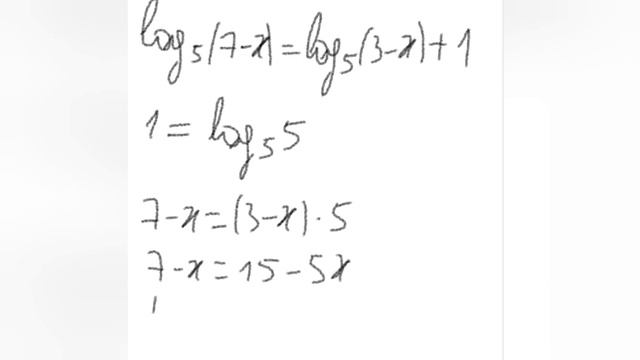 log₅(7-x)=log₅(3-x)+1
1=log₅5
7-x=(3-x)·5
7-x=15-5x